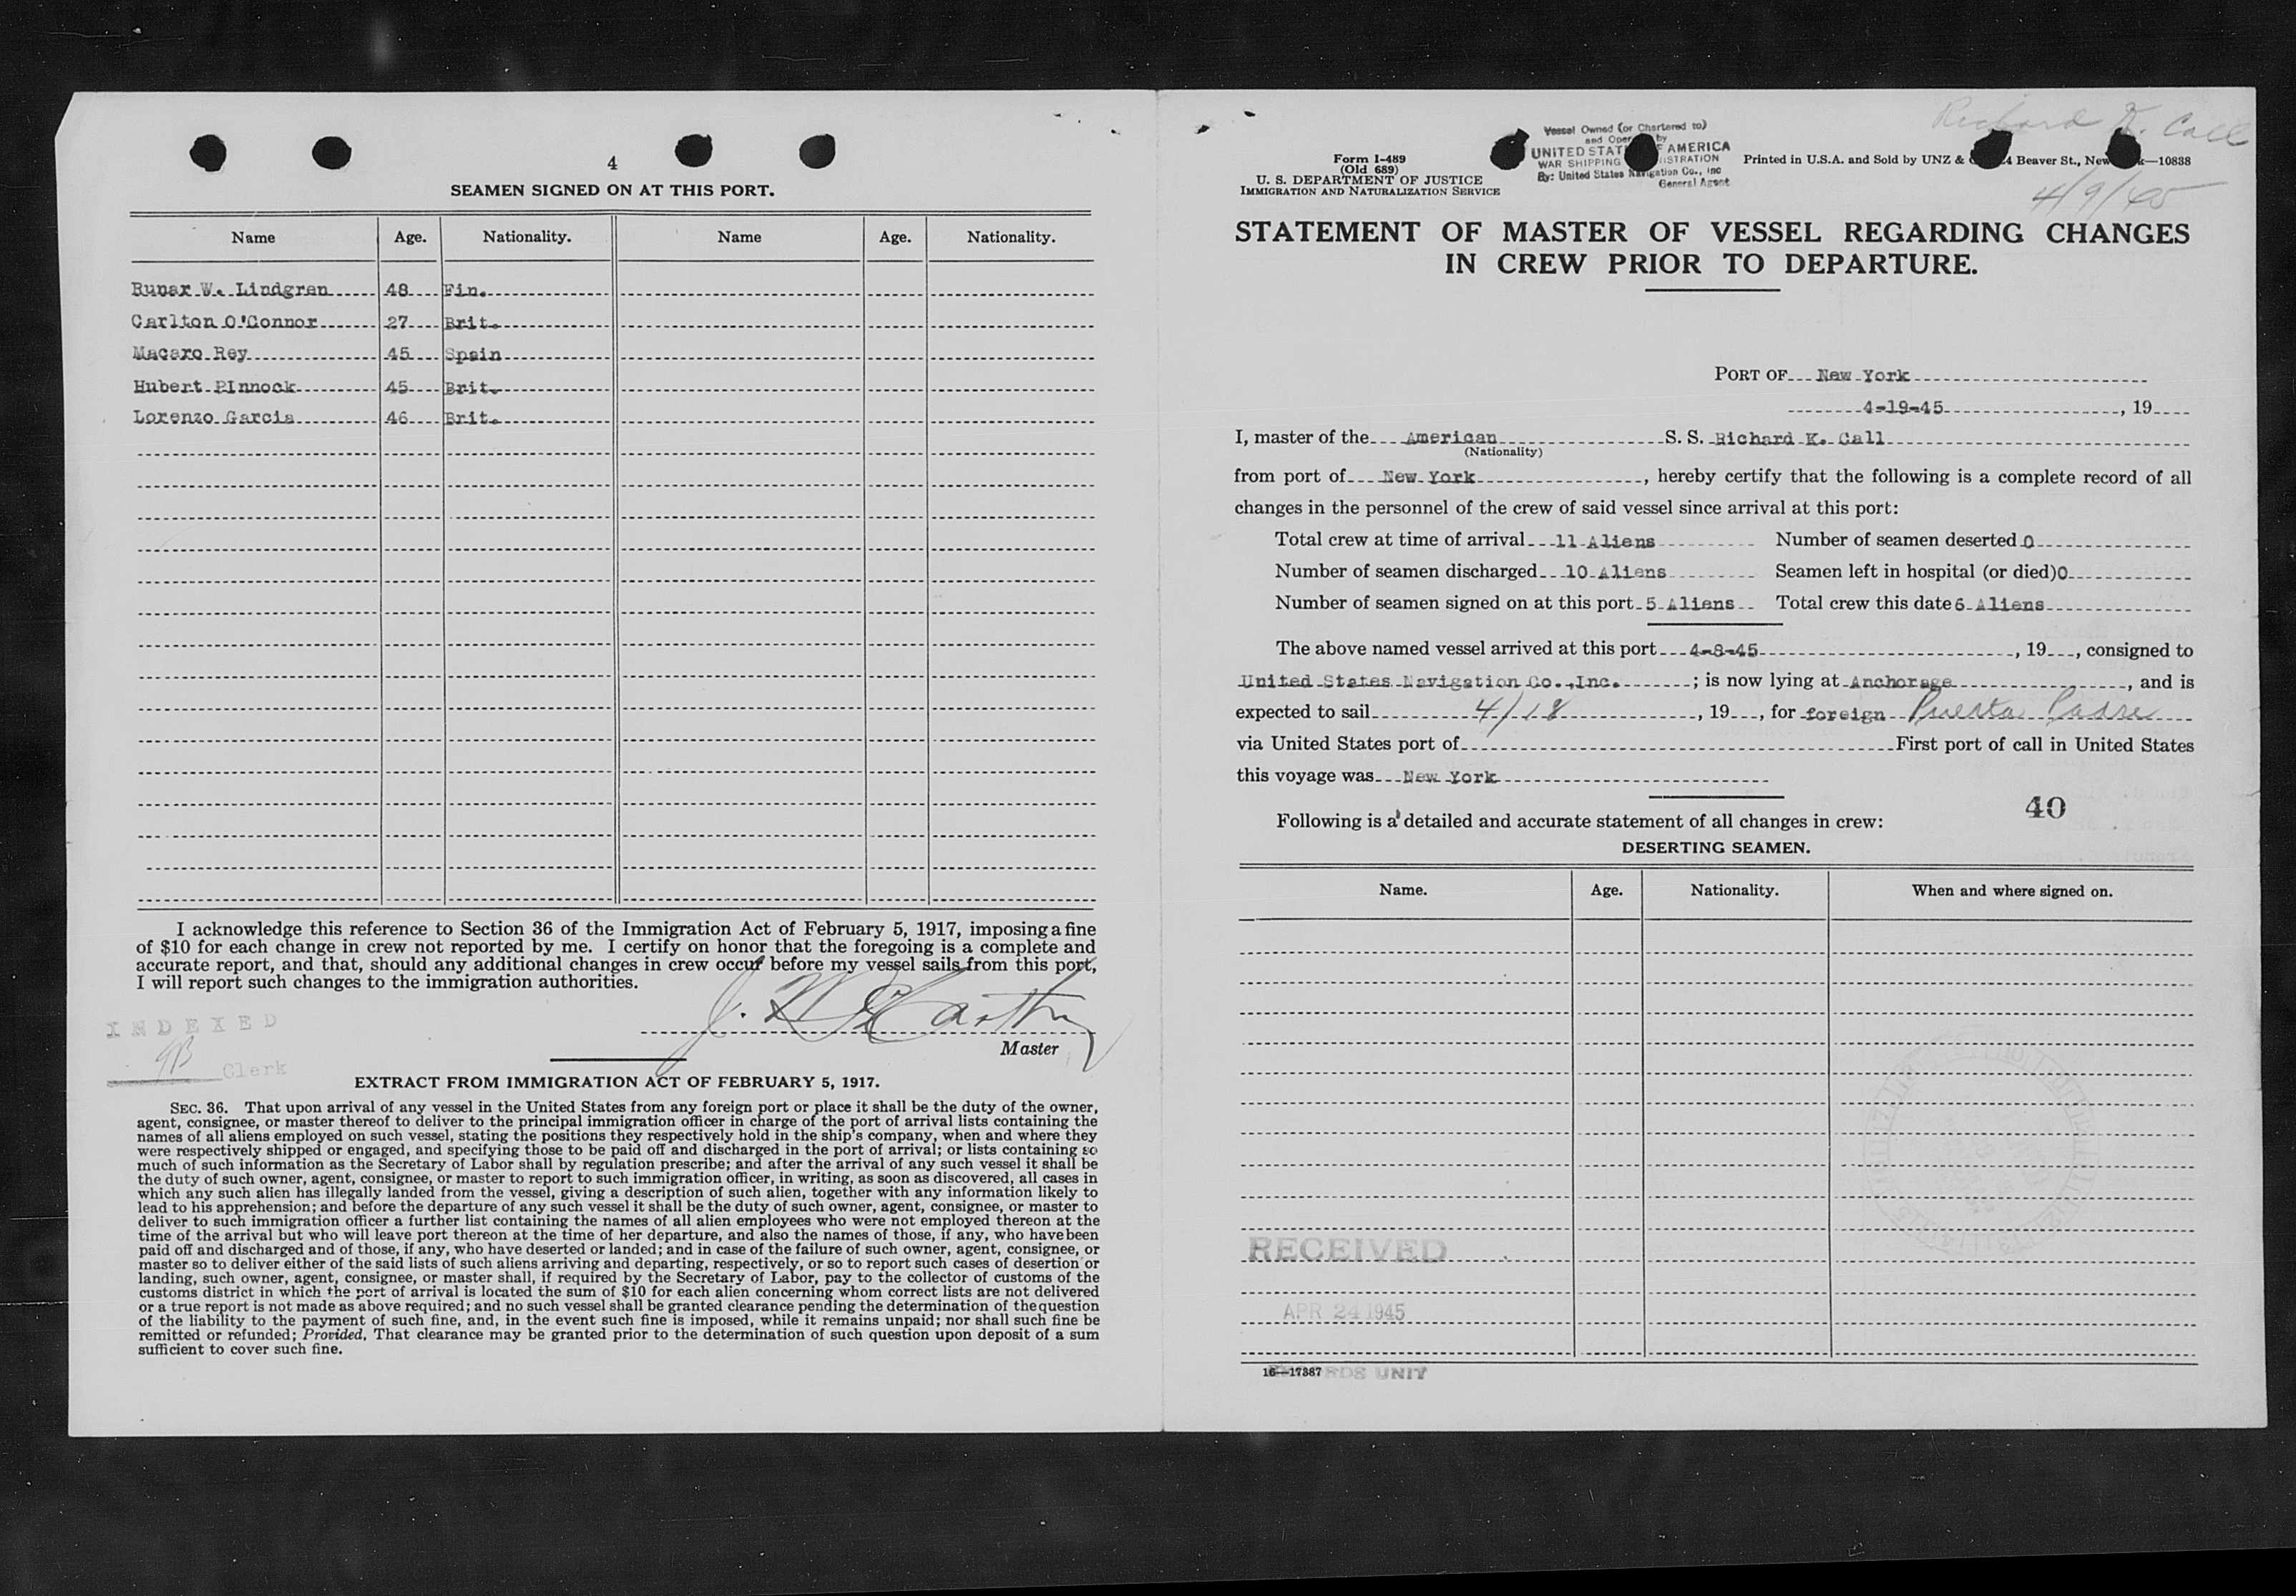 4
SEAMEN SIGNED ON AT THIS PORT.
Name Age. Nationality. Name Age. Nationality.
Runar W. Lindgren 48 Fin.
Carlton O'Connor 27 Brit.
Macaro Rey 45 Spain
Hubert PInnock 45 Brit.
Lorenzo Garcia 46 Brit.
I acknowledge this reference to Section 36 of the Immigration Act of February 5, 1917, imposing a fine
of $10 for each change in crew not reported by me. I certify on honor that the foregoing is a complete and
accurate report, and that, should any additional changes in crew occur before my vessel sails from this port,
I will report such changes to the immigration authorities.
J. McCarthy
INDEXED
Master
Clerk
EXTRACT FROM IMMIGRATION ACT OF FEBRUARY 5, 1917.
SEC. 36. That upon arrival of any vessel in the United States from any foreign port or place it shall be the duty of the owner,
agent, consignee, or master thereof to deliver to the principal immigration officer in charge of the port of arrival lists containing the
names of all aliens employed on such vessel, stating the positions they respectively hold in the ship's company, when and where they
were respectively shipped or engaged, and specifying those to be paid off and discharged in the port of arrival; or lists containing so
much of such information as the Secretary of Labor shall by regulation prescribe; and after the arrival of any such vessel it shall be
the duty of such owner, agent, consignee, or master to report to such immigration officer, in writing, as soon as discovered, all cases in
which any such alien has illegally landed from the vessel, giving a description of such alien, together with any information likely to
lead to his apprehension; and before the departure of any such vessel it shall be the duty of such owner, agent, consignee, or master to
deliver to such immigration officer a further list containing the names of all alien employees who were not employed thereon at the
time of the arrival but who will leave port thereon at the time of her departure, and also the names of those, if any, who have been
paid off and discharged and of those, if any, who have deserted or landed; and in case of the failure of such owner, agent, consignee, or
master so to deliver either of the said lists of such aliens arriving and departing, respectively, or so to report such cases of desertion or
landing, such owner, agent, consignee, or master shall, if required by the Secretary of Labor, pay to the collector of customs of the
customs district in which the port of arrival is located the sum of $10 for each alien concerning whom correct lists are not delivered
or a true report is not made as above required; and no such vessel shall be granted clearance pending the determination of the question
of the liability to the payment of such fine, and, in the event such fine is imposed, while it remains unpaid; nor shall such fine be
remitted or refunded; Provided, That clearance may be granted prior to the determination of such question upon deposit of a sum
sufficient to cover such fine.
Richard K. Call
4/9/45
Form I-489
(Old 689)
U. S. DEPARTMENT OF JUSTICE
IMMIGRATION AND NATURALIZATION SERVICE
Vessel Owned (or Chartered to)
and Oper by
UNITED STAT F AMERICA
WAR SHIPPING ISTRATION
By: United States Navigation Co., Inc
General Agent
Printed in U.S.A. and Sold by UNZ & Beaver St., New k—10838
STATEMENT OF MASTER OF VESSEL REGARDING CHANGES
IN CREW PRIOR TO DEPARTURE.
PORT OF New York
4-19-45, 19
I, master of the American S. S. Richard K. Call
(Nationality)
from port of New York, hereby certify that the following is a complete record of all
changes in the personnel of the crew of said vessel since arrival at this port:
Total crew at time of arrival 11 Aliens Number of seamen deserted 0
Number of seamen discharged 10 Aliens Seamen left in hospital (or died) 0
Number of seamen signed on at this port 5 Aliens Total crew this date 6 Aliens
The above named vessel arrived at this port 4-8-45, 19, consigned to
United States Navigation Co.,Inc.; is now lying at Anchorage, and is
expected to sail 4/18, 19, for foreign Puerta Padre
via United States port of First port of call in United States
this voyage was New York
40
Following is a detailed and accurate statement of all changes in crew:
DESERTING SEAMEN.
Name. Age. Nationality. When and where signed on.
RECEIVED
APR 24 1945
16—17387 RDS UNIT